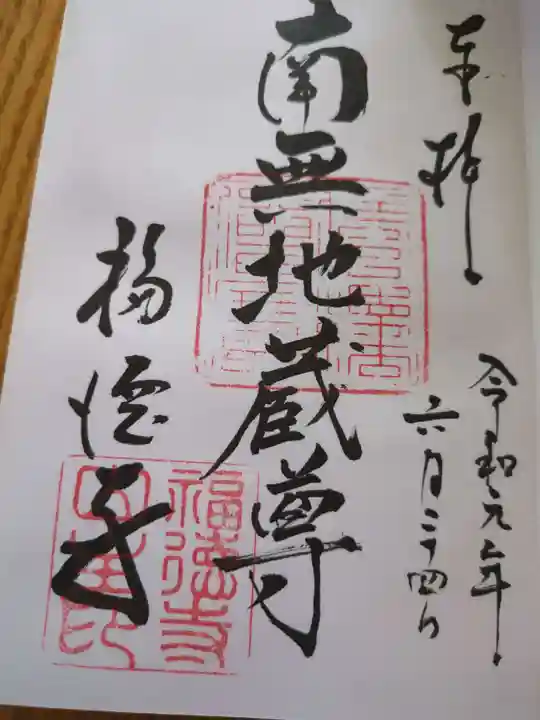 奉拝
令和元年
六月二十四日
南無地蔵尊
福徳寺
福徳寺